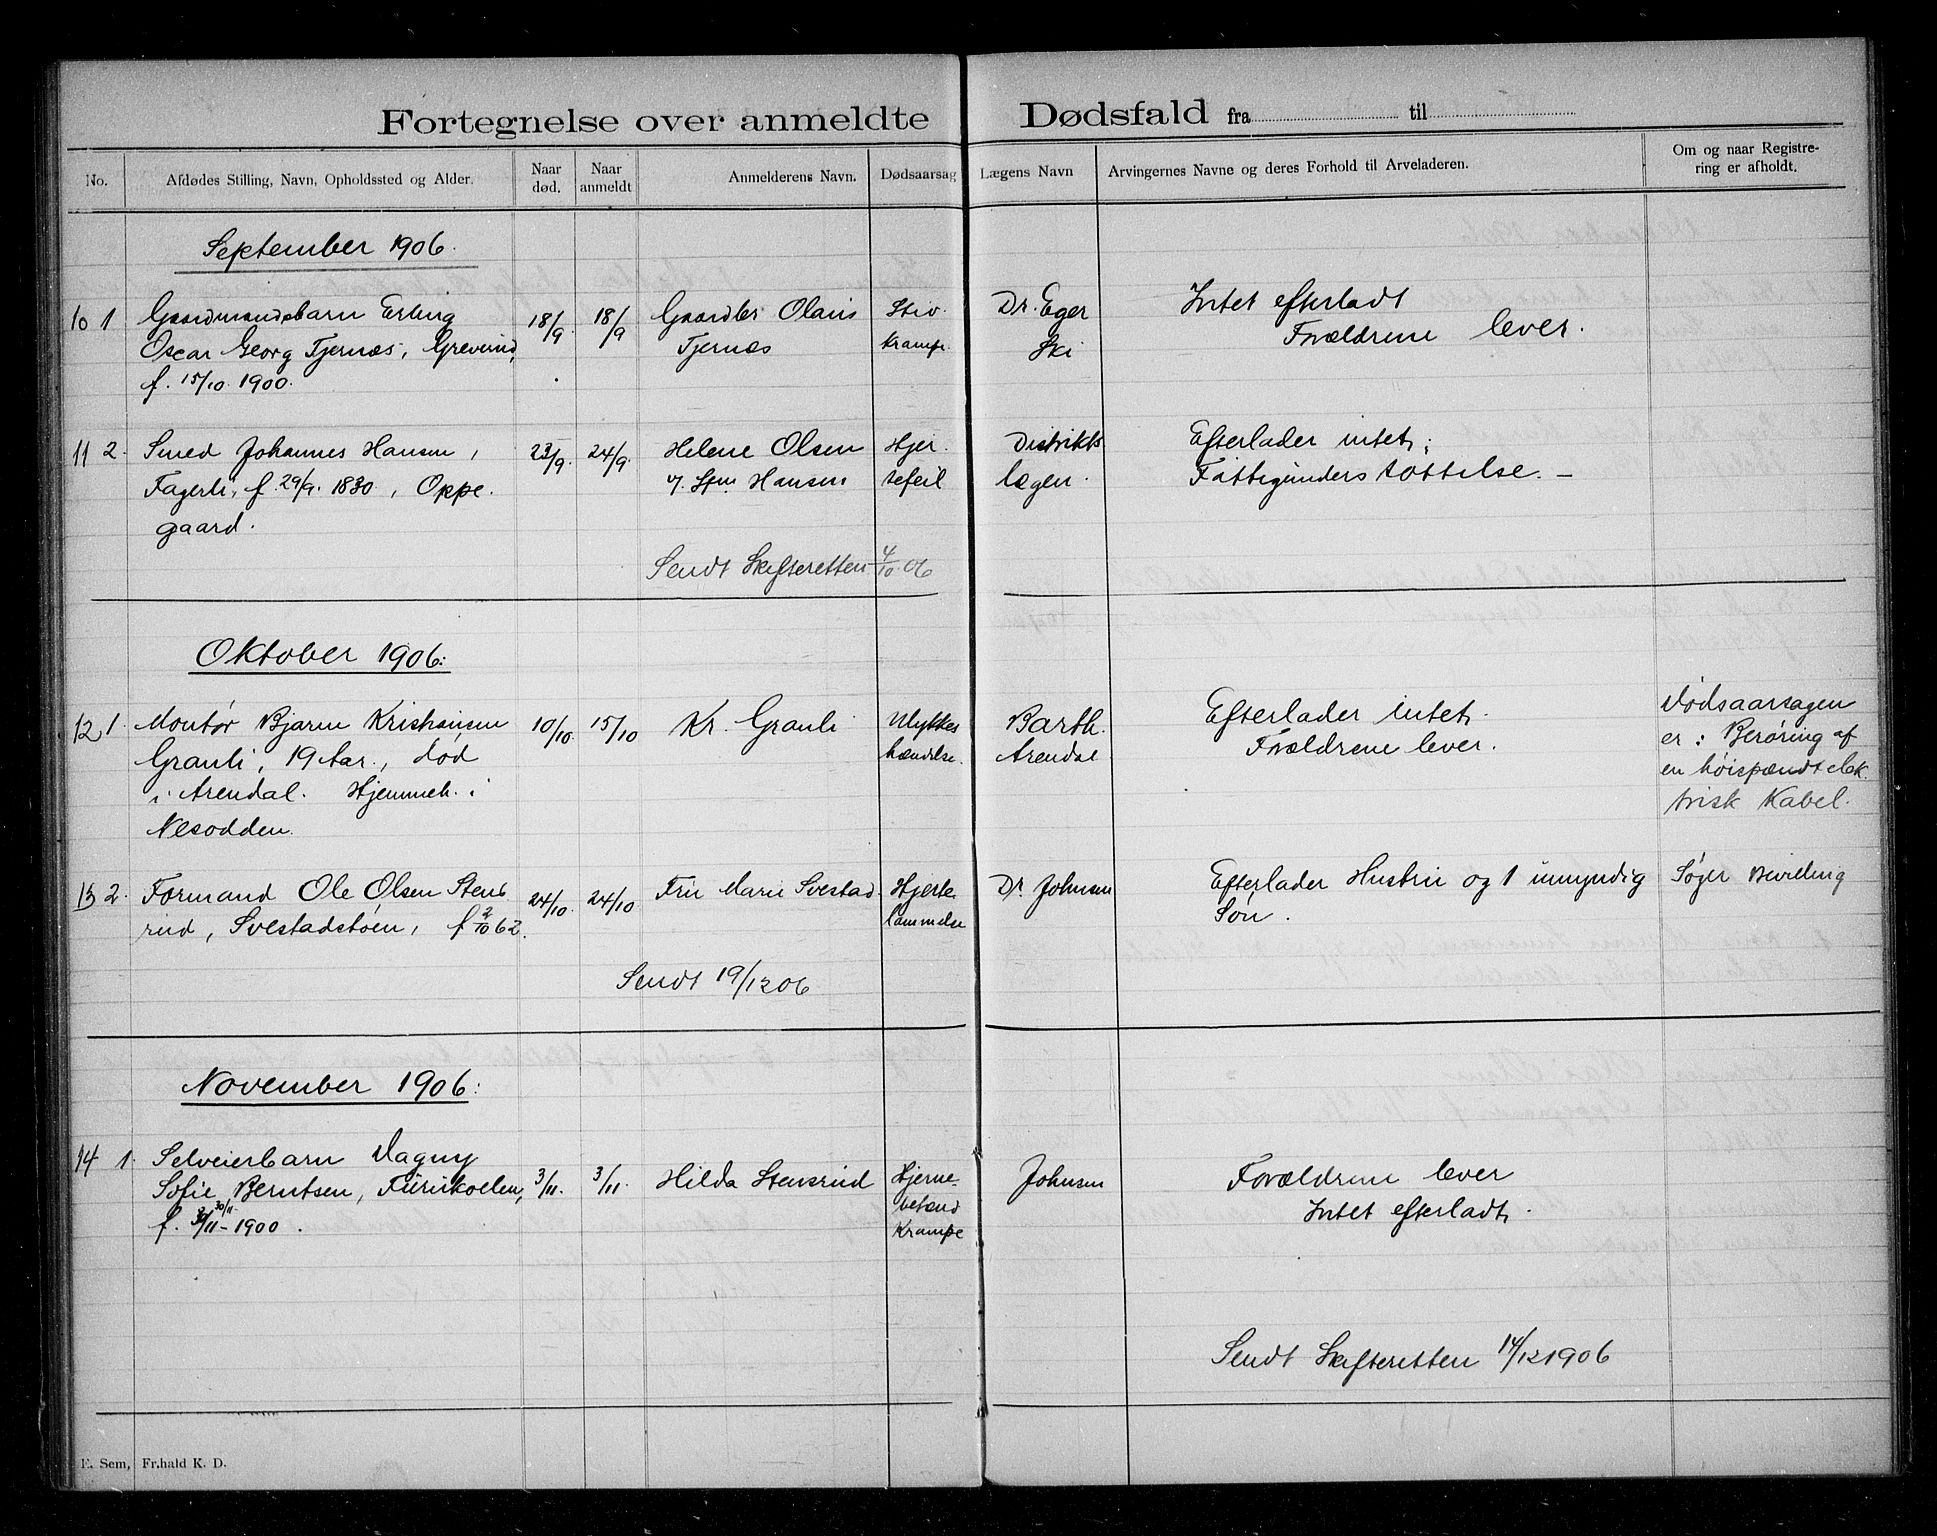 Fortegnelse over anmeldte Dødsfald fra til
No.
Afdødes Stilling, Navn, Opholdssted og Alder.
Naar død.
Naar anmeldt
Anmelderens Navn.
Dødsaarsag
Lægens Navn
Arvingernes Navne og deres Forhold til Arveladeren.
Om og naar Registre-
ring er afholdt.
September 1906.
10 1
Gaardmandsbarn Erling
Oscar Georg Tjernæs, Greverud,
f. 15/10 1900.
18/9
18/9
Gaardbr Olaus
Tjernæs
Stiv.
krampe.
Dr. Eger
Ski
Intet efterladt
Forældrene lever.
11 2.
Smed Johannes Hansen,
Fagerli, f. 29/9. 1830, Oppe.
gaard.
23/9.
24/9.
Helene Olsen
Hansen
Hjer.
tefeil
Distrikts
lægen.
Efterlader intet;
Fattigunderstøttelse. —
Sendt Skifteretten 4/10. 06
Oktober 1906:
12 1.
Montør Bjarne Kristiansen
Granli, 19 Aar., død
i Arendal. Hjemmeh. i
Nesodden.
10/10.
15/10
Kr. Granli
Ulykkes
hændelse.
Barth.
Arendal
Efterlader intet.
Forældrene lever.
Dødsaarsagen
er: Berøring af
en høispændt elek
trisk Kabel.
13 2.
Formand Ole Olsen Stens
rud, Svestadstøen, f 2/10 62.
24/10.
24/10
Fru Marie Svestad
Hjerte
lammelse
Dr. Johnsen
Efterlader Hustru og 1 umyndig
Søn.
Søger Bevilling
Sendt 19/12 06
November 1906:
14 1.
Selveierbarn Dagny
Sofie Berntsen, Furukollen,
f. 30/11 - 1900.
30/11
3/11.
3/11.
Hilda Stensrud
Hjerne-
betænd
Krampe
Johnsen
Forældrene lever
Intet efterladt.
Sendt Skifteretten 14/12 1906
E. Sem, Fr.hald K. D.